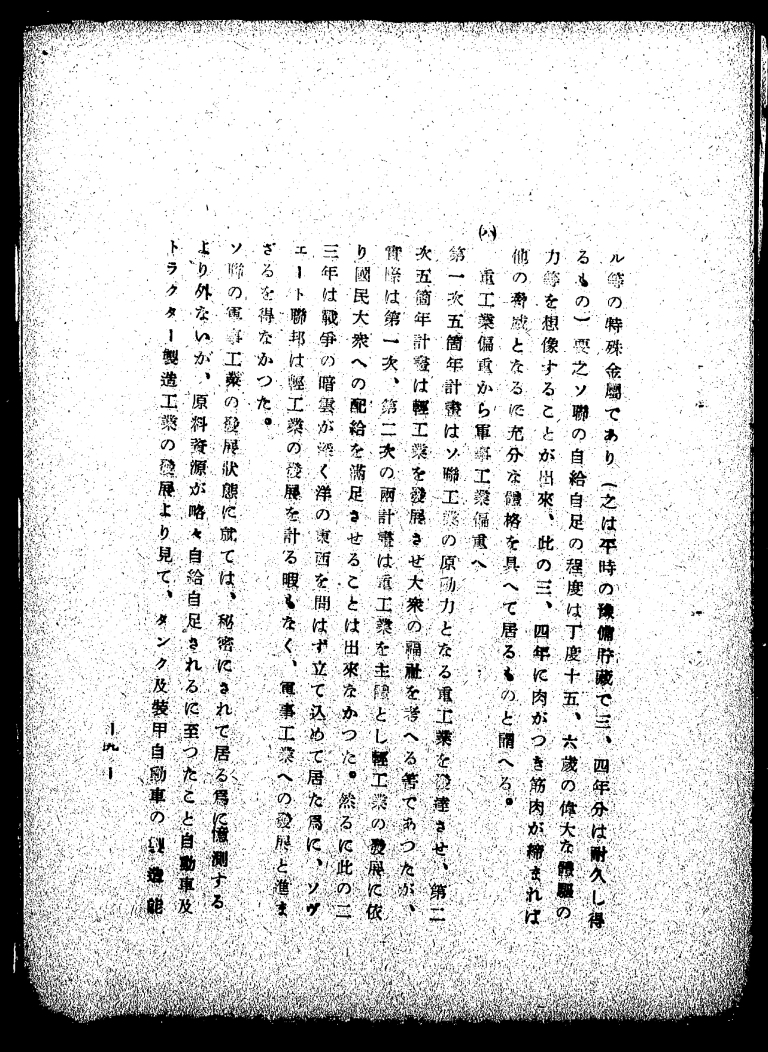 ル等の特殊金屬であり(之は平時の豫備貯藏で三、四年分は耐久し得
るもの)要之ソ聯の自給自足の程度は丁度十五、六歲の偉大な體軀の
力等を想像することが出來、此の三、四年に肉がつき筋肉が締まれば
他の脅威となるに充分な體格を具へて居るものと謂へる。
(ハ)
重工業偏重から軍事工業偏重へ
第一次五箇年計畫はソ聯工業の原動力となる重工業を發達させ、第二
次五箇年計畫は輕工業を發展させ大衆の福祉を考へる筈であつたが、
實際は第一次、第二次の兩計畫は重工業を主眼とし輕工業の發展に依
り國民大衆への配給を滿足させることは出來なかつた。然るに此の二
三年は戰爭の暗雲が深く洋の東西を問はず立て込めて居た爲に、ソヴ
エート聯邦は輕工業の發展を計る暇もなく、軍事工業への發展と進ま
ざるを得なかつた。
ソ聯の軍事工業の發展狀態に就ては、秘密にされて居る爲に憶測する
より外ないが、原料資源が略々自給自足されるに至つたこと自動車及
トラクター製造工業の發展より見て、タンク及裝甲自動車の製造能